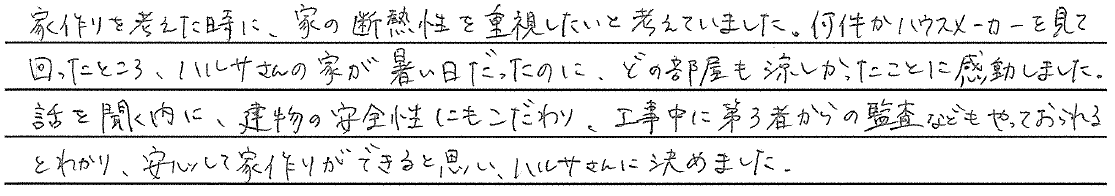 家作りを考えた時に、家の断熱性を重視したいと考えていました。何件かハウスメーカーを見て
回ったところ、ハルサさんの家が暑い日だったのに、どの部屋も涼しかったことに感動しました。
話を聞く内に、建物の安全性にもこだわり、工事中に第3者からの監査などもやっておられる
とわかり、安心して家作りができると思い、ハルサさんに決めました。